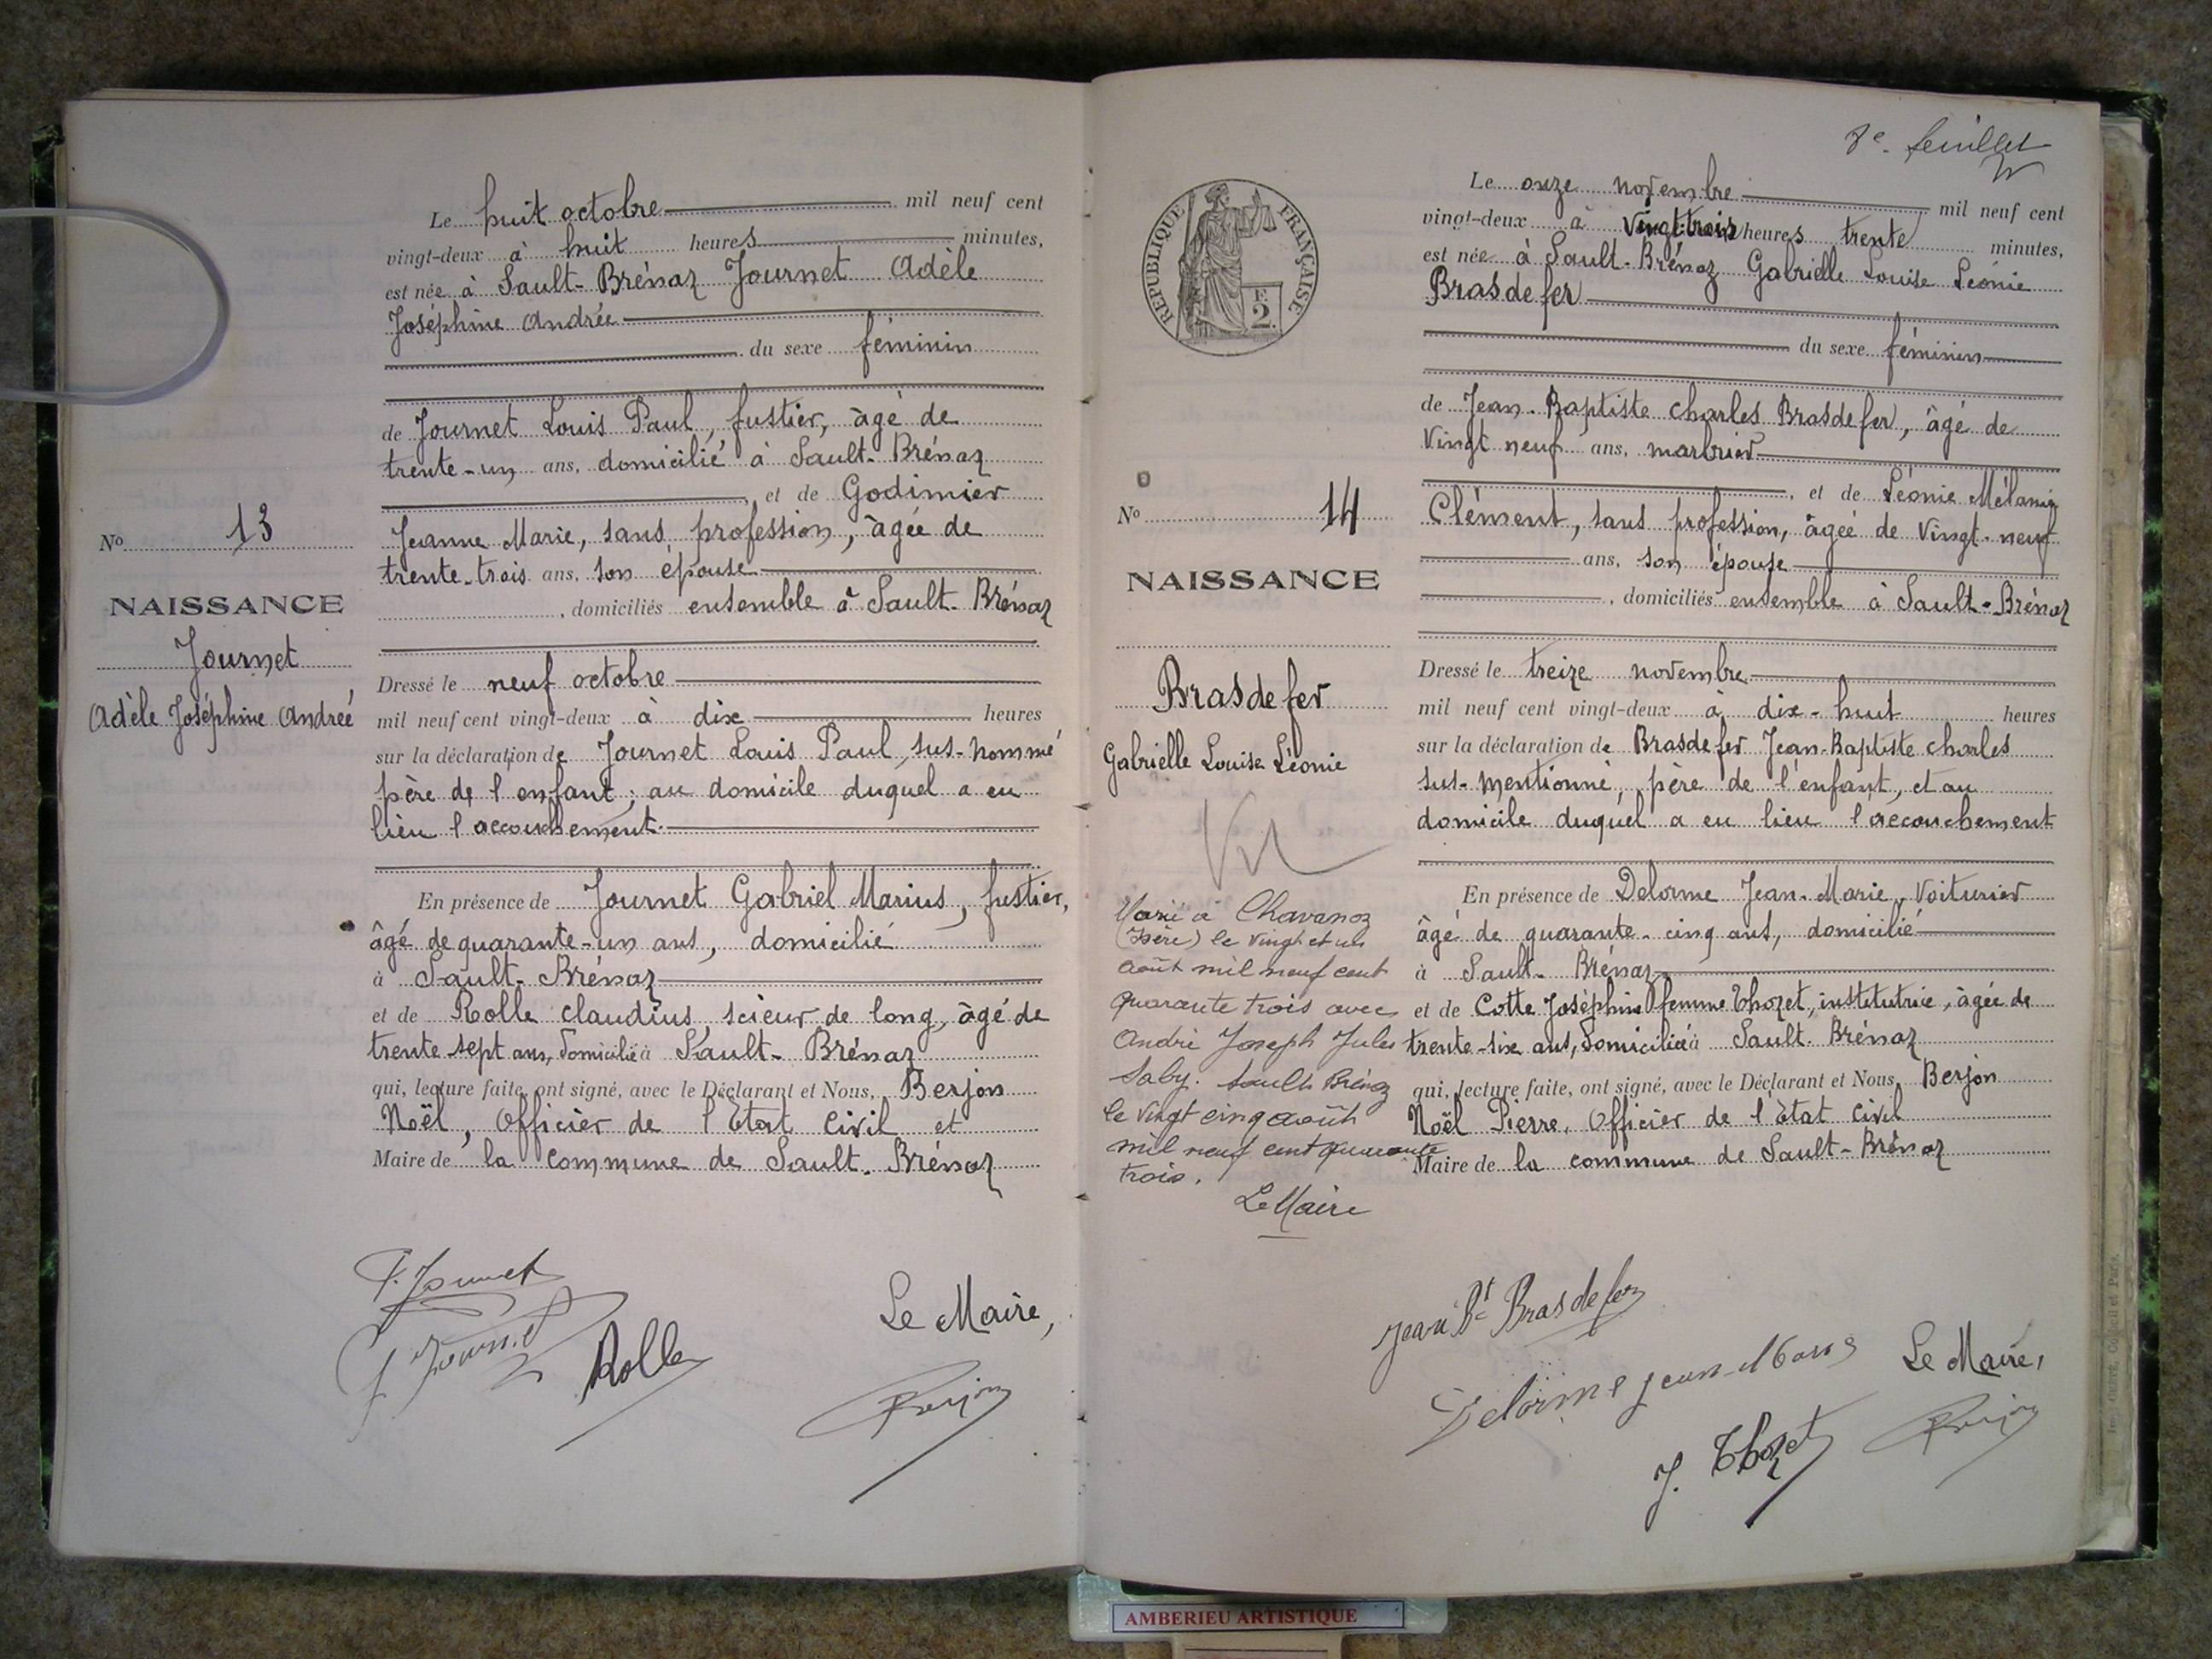 Le huit octobre mil neuf cent
vingt-deux à huit heures minutes,
est née à Sault-Brénaz Journet Adèle
Joséphine Andrée
du sexe féminin
de Journet Louis Paul, fustier, âgé de
trente-un ans, domicilié à Sault-Brénaz
, et de Godimier
Jeanne Marie, sans profession, âgée de
trente-trois ans, son épouse
, domiciliés ensemble à Sault-Brénaz
No 13
NAISSANCE
Journet
Adèle Joséphine Andreé
Dressé le neuf octobre
mil neuf cent vingt-deux à dix heures
sur la déclaration de Journet Louis Paul, sus-nommé
père de l'enfant; au domicile duquel a eu
lieu l'accouchement.
En présence de Journet Gabriel Marius, fustier,
âgé de quarante-un ans, domicilié
à Sault-Brénaz
et de Rolle Claudius, scieur de long, âgé de
trente sept ans, domicilié à Sault-Brénaz
qui, lecture faite, ont signé, avec le Déclarant et Nous, Berjon
Noël, Officier de l'Etat Civil et
Maire de la commune de Sault-Brénaz
P. Journet
Journet
Rolle
Le Maire,
Berjon
8e feuillet
RÉPUBLIQUE FRANÇAISE
2
Le onze novembre mil neuf cent
vingt-deux à vingt-trois heures trente minutes,
est née à Sault-Brénaz Gabrielle Louise Léonie
Brasdefer
du sexe féminin
de Jean-Baptiste Charles Brasdefer, âgé de
vingt neuf ans, marbrier
, et de Léonie Mélanie
Clément, sans profession, âgée de vingt-neuf
ans, son épouse
, domiciliés ensemble à Sault-Brénaz
No 14
NAISSANCE
Brasdefer
Gabrielle Louise Léonie
Marié à Chavanoz
(Isère) le vingt et un
août mil neuf cent
quarante trois avec
André Joseph Jules
Saby. Sault Brénaz
le vingt cinq août
mil neuf cent quarante
trois.
Le Maire
Dressé le treize novembre
mil neuf cent vingt-deux à dix-huit heures
sur la déclaration de Brasdefer Jean-Baptiste Charles
sus-mentionné, père de l'enfant, et au
domicile duquel a eu lieu l'accouchement
En présence de Delorme Jean-Marie, Voiturier
âgé de quarante-cinq ans, domicilié
à Sault-Brénaz
et de Cotte Joséphine femme Thozet, institutrice, âgée de
trente-six ans, domiciliée à Sault-Brénaz
qui, lecture faite, ont signé, avec le Déclarant et Nous, Berjon
Noël Pierre, Officier de l'état Civil
Maire de la commune de Sault-Brénaz
Jean Bte Brasdefer
Delorme Jean-Marie
J. Thozet
Le Maire,
Berjon
AMBERIEU ARTISTIQUE